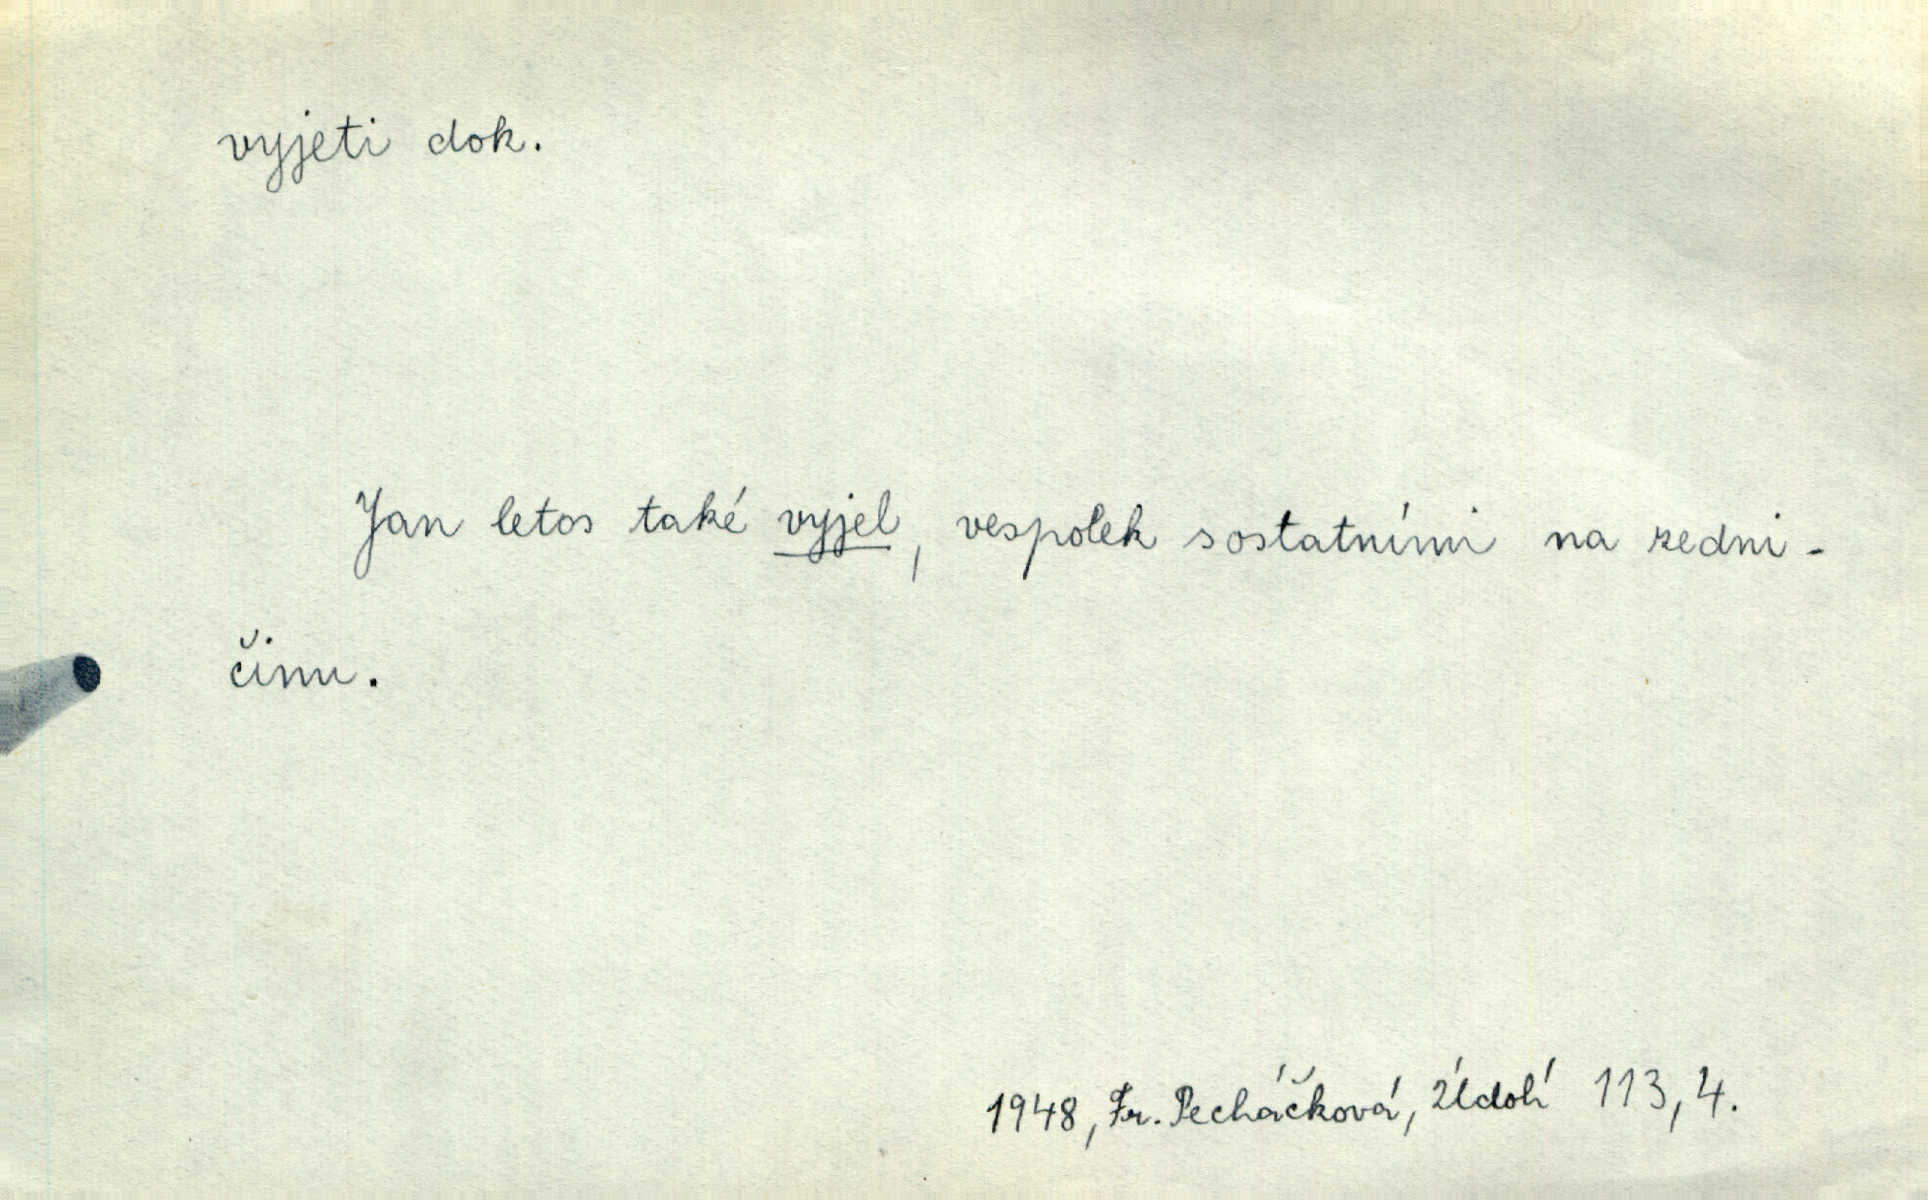 vyjeti dok.
Jan letos také vyjel, vespolek s ostatními na zedni-
činu.
1948, Fr. Pecháčková, Údolí 113, 4.